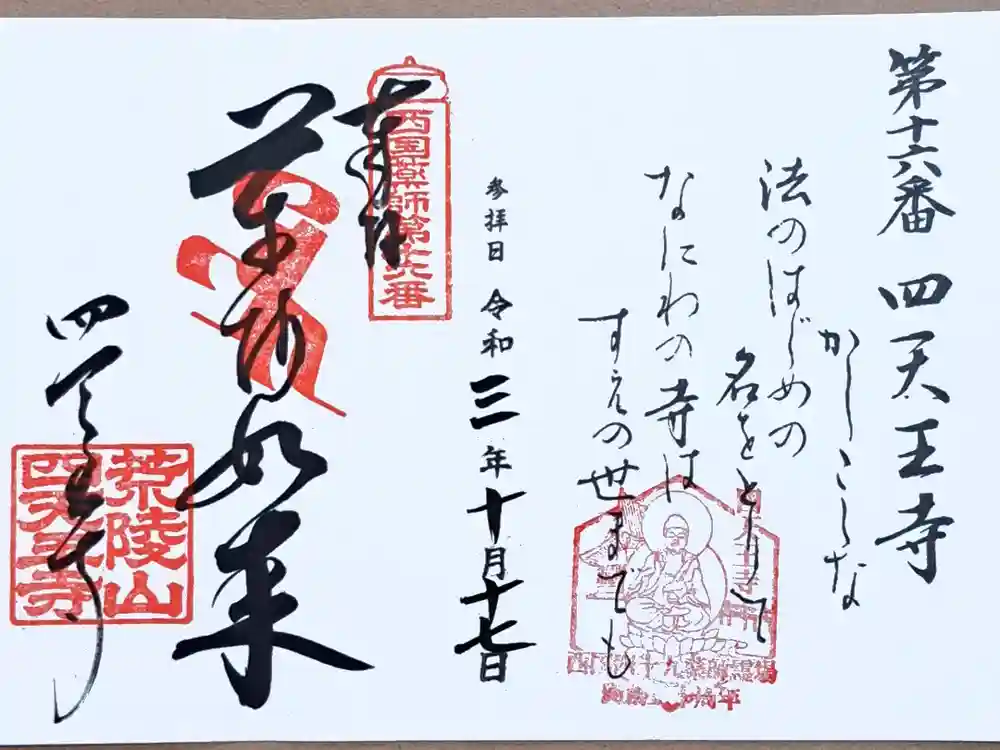 第十六番 四天王寺
かしこしな
法のはじめの
名をとりて
なにわの寺は
すえの世までも
参拝日 令和三年十月十七日
奉拝
西国薬師第十六番
薬師如来
四天王寺
荒陵山
四天王寺